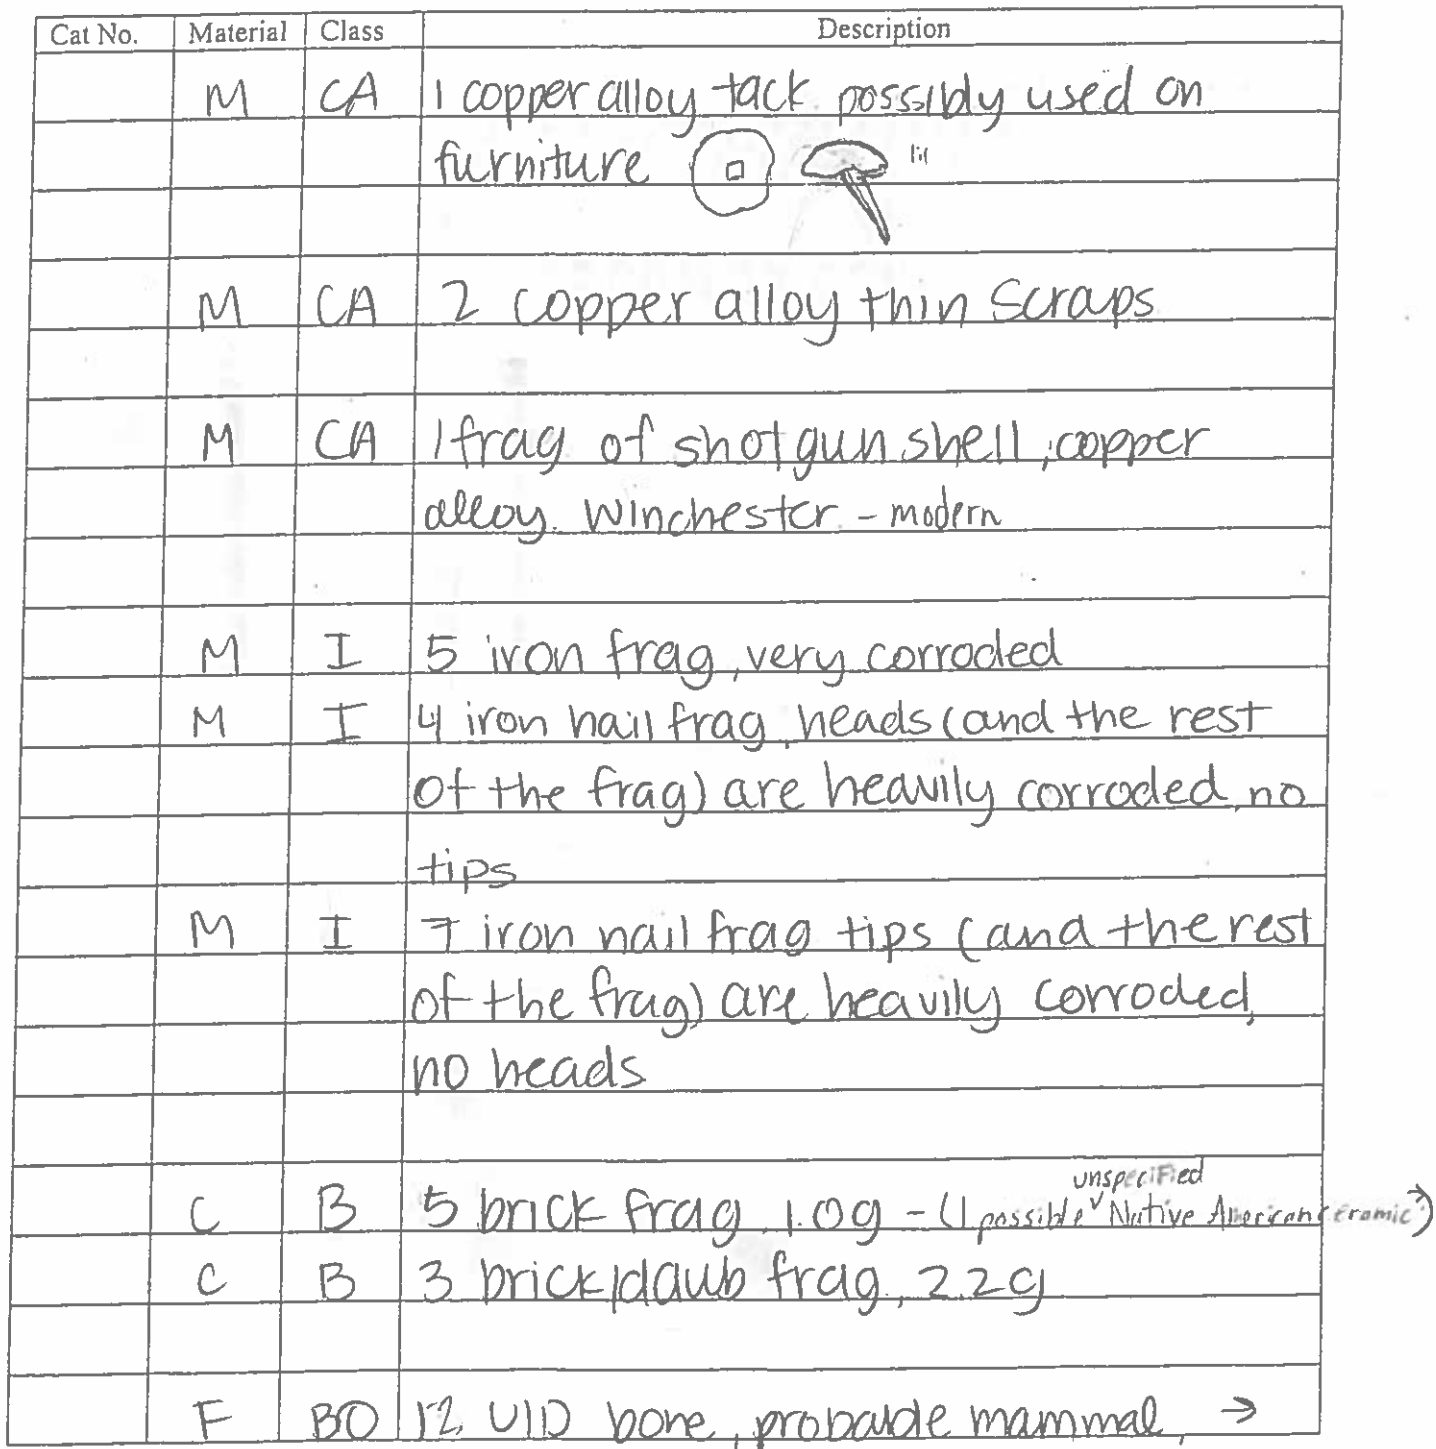 Cat No. Material Class Description
M CA 1 copper alloy tack possibly used on
furniture
M CA 2 copper alloy thin scraps
M CA 1 frag of shotgun shell, copper
alloy. Winchester - modern
M I 5 iron frag, very corroded
M I 4 iron nail frag, heads (and the rest
of the frag) are heavily corroded, no
tips
M I 7 iron nail frag tips (and the rest
of the frag) are heavily corroded,
no heads
unspecified
C B 5 brick frag, 1.0g - (1 possible ˅ Native American ceramic →)
C B 3 brick/daub frag, 2.2g
F BO 12 UID bone, probable mammal, →